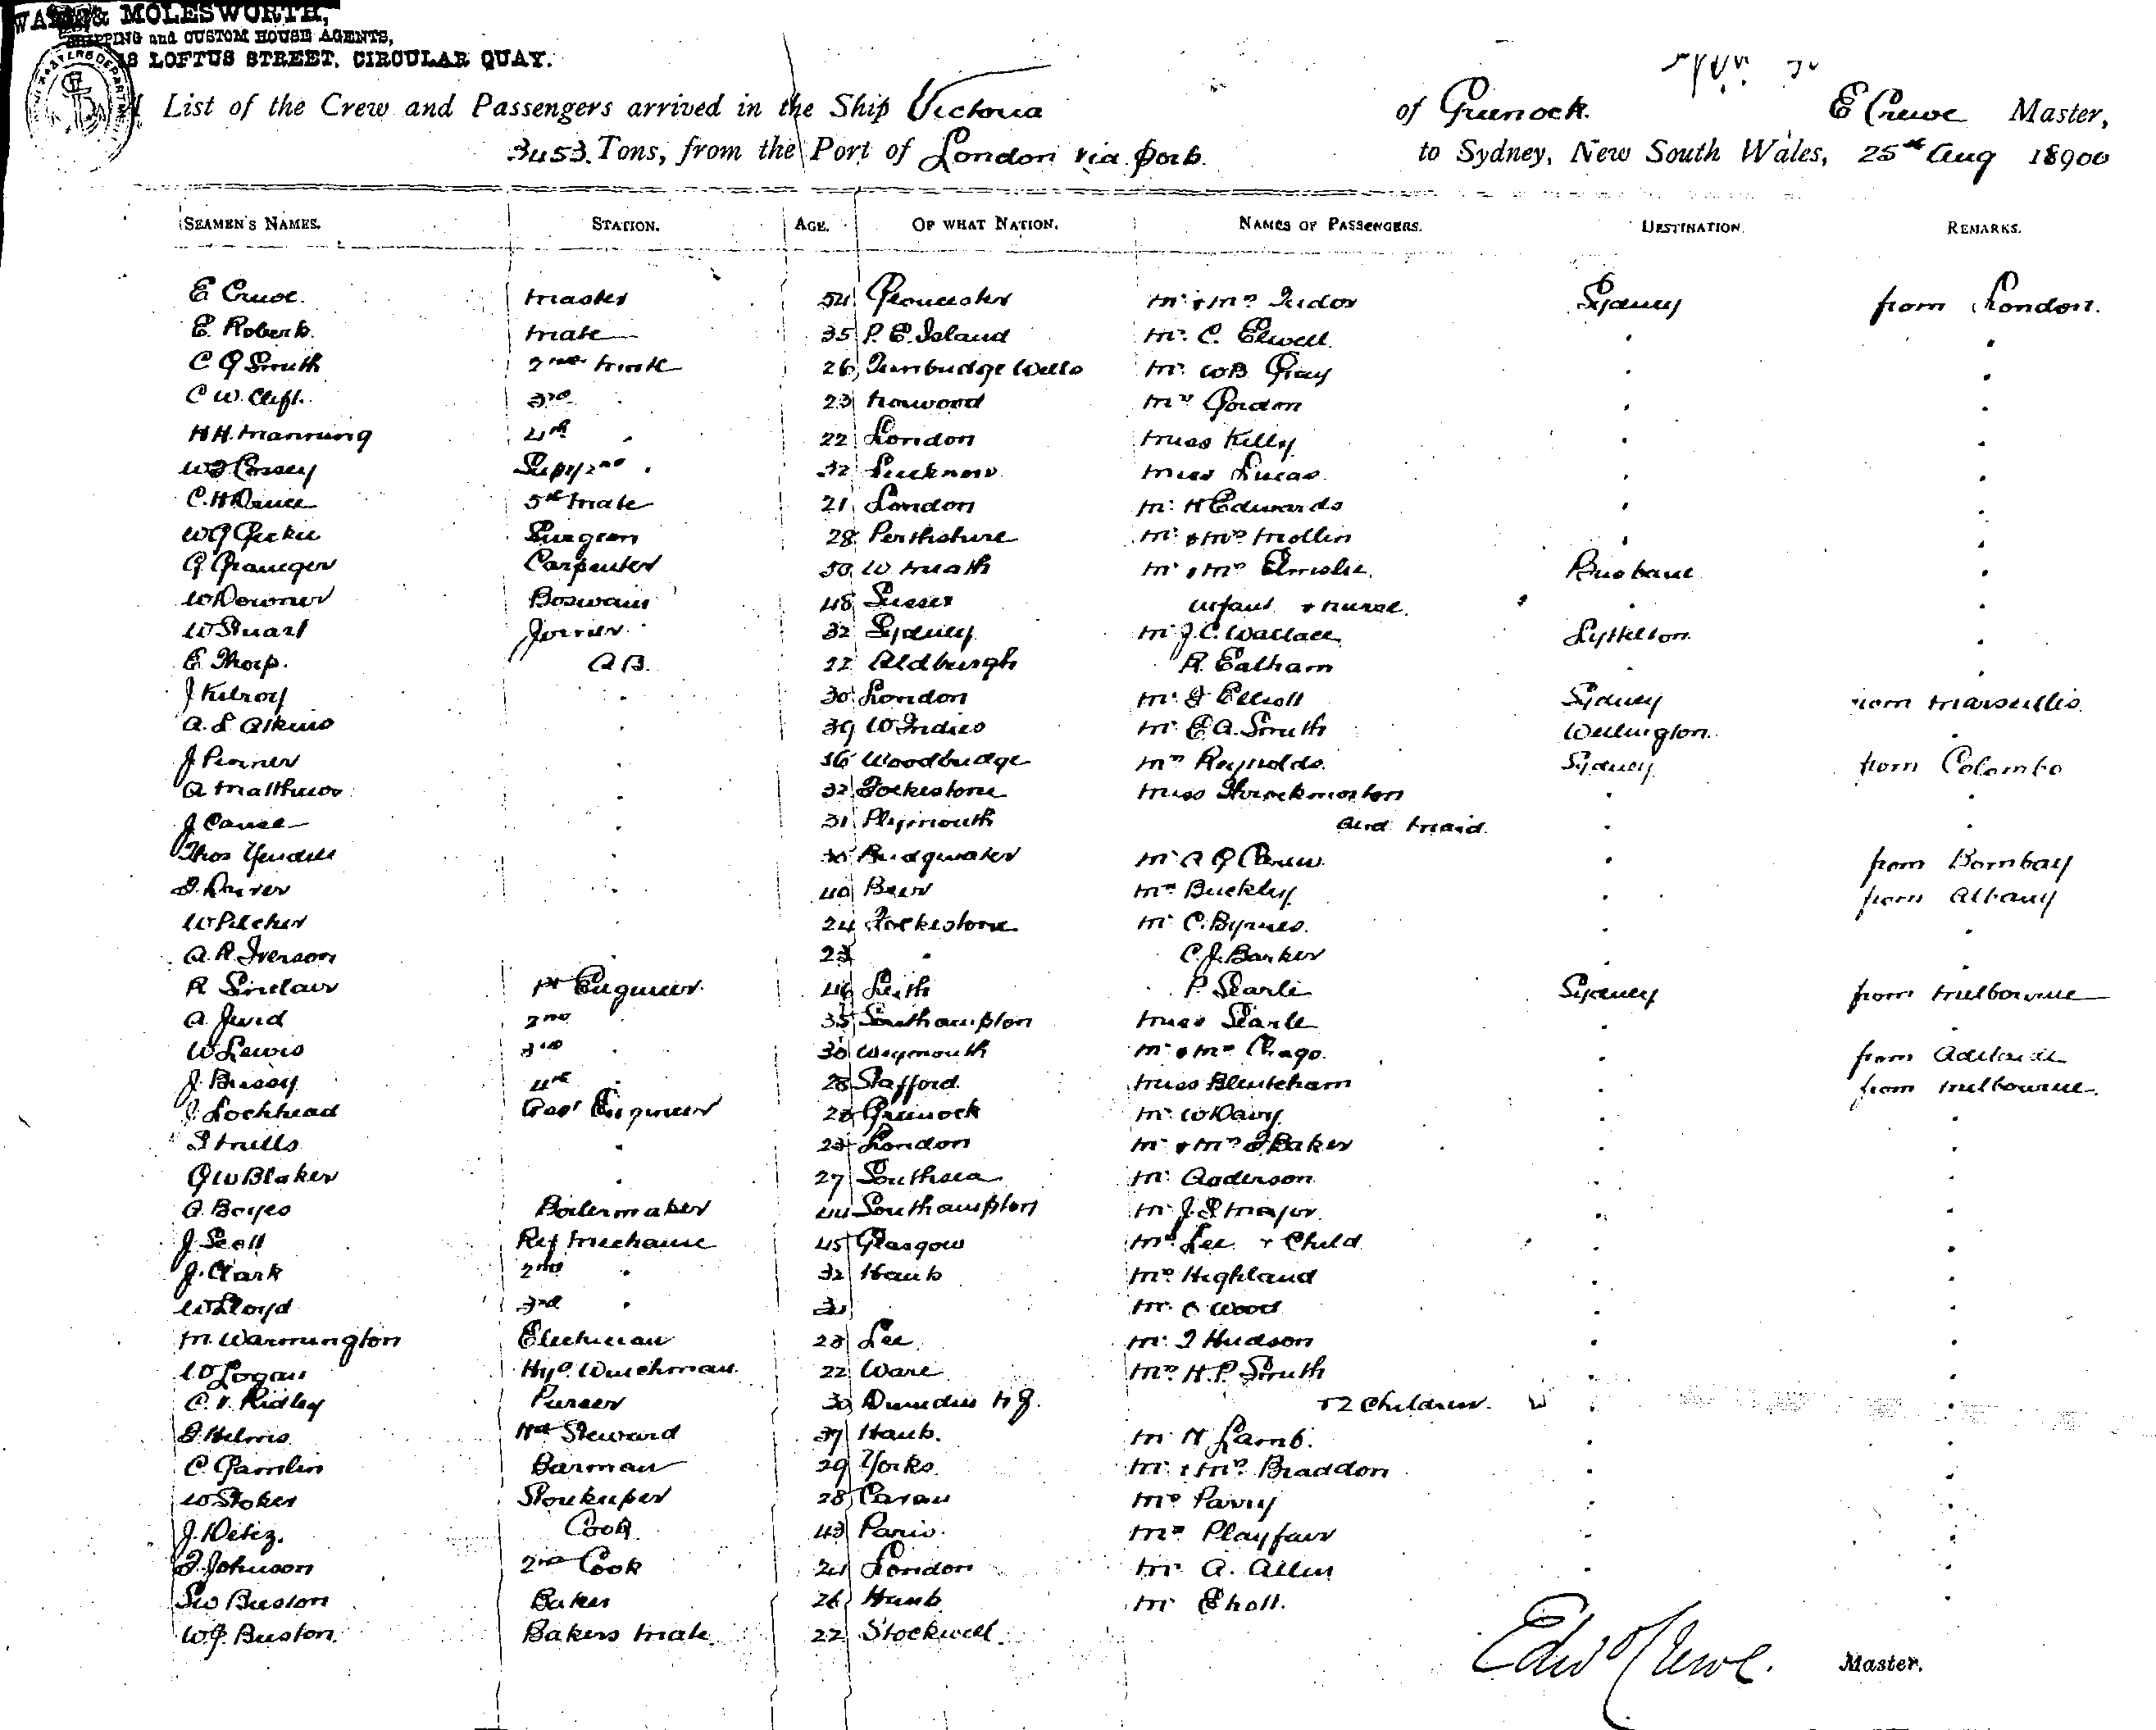 & MOLESWORTH,
SHIPPING and CUSTOM HOUSE AGENTS,
LOFTUS STREET, CIRCULAR QUAY.
List of the Crew and Passengers arrived in the Ship Victoria of Greenock. E Crewe Master,
3453 Tons, from the Port of London via Ports to Sydney, New South Wales, 25th Aug 18900
SEAMEN'S NAMES. STATION. AGE. OF WHAT NATION. NAMES OF PASSENGERS. DESTINATION. REMARKS.
E Crewe. Master 54 Gloucester Mr & Mrs Tudor Sydney from London.
E. Roberts. Mate 35 P. E. Island Mr. C. Elwell.
C G Smith 2nd Mate 26 Tunbridge Wells Mr. W B Gray
C W. Clift. 3rd 23 Norwood Mrs Gordon
H H. Manning 4th 22 London Miss Kelly
Supy 2nd 32 Lucknow. Miss Lucas.
5th Mate 21 London Mr H Edwards
W G Geekie Surgeon 28 Perthshire Mr & Mrs Mollin
G Grainger Carpenter 50 W. Meath Mr & Mrs Elmslie. Brisbane
W Downer Boswain 48 Sussex infant & nurse.
W Stuart Joiner 32 Sydney Mr J. C. Wallace Lyttelton.
E. Thorp. A B. 22 Aldburgh R. Ealham
J Kilroy 30 London Mr Elliott Sydney from Marseilles.
A. S. Atkins 39 W Indies Mr E A. Smith Wellington.
J Penner 36 Woodbridge Mrs Reynolds. Sydney from Colombo
A Matthews 32 Folkestone Miss Throckmorton
J Cause 31 Plymouth and Maid.
Thos Yendell Bridgwater Mr A G Carew. from Bombay
Driver 40 Beer Mrs Buckley. from Albany
W Pilcher 24 Folkestone Mr C. Byrnes.
A. R. Iverson 23 C. J. Barker
R Sinclair 1st Engineer. 46 Leith P. Searle Sydney from Melbourne
A. Jurd 2nd 35 Southampton Miss Searle
W Lewis 3rd 30 Weymouth Mr & Mrs Chago. from Adelaide
J. Bussey 4th 28 Stafford. Miss Blenteham from Melbourne.
J. Lochhead Asst Engineer Greenock Mr. W Davy.
Mills London Mr & Mrs Baker
G W Blaker 27 Southsea Mr. Anderson
A. Boyes Boilermaker 44 Southampton Mr. J. S Major.
J. Scott Ref Mechanic 45 Glasgow Mrs Lee & Child
J. Clark 2nd 32 Hants Mrs Highland
W Lloyd 3rd Mr. C Wood
M. Warmington Electrician 23 Lee Mr. J Hudson
W Logan Hyd. Winchman. 22 Ware Mrs H. P. Smith
C. V. Ridley Purser 30 Dunedin N Z. & 2 Children.
Helms Hd Steward 37 Hants. Mr H Lamb.
C. Gamlin Barman 29 Yorks. Mr & Mrs Braddon
W Stoker Storekeeper 28 Cavan Mrs Parry
J. Detez. Cook 43 Paris. Mrs Playfair
Johnson 2nd Cook 24 London Mr. A. Allen
Buston Baker 26 Hants Mr Sholl.
W J. Buston. Bakers Mate 22 Stockwell.
Edwd Crewe. Master.